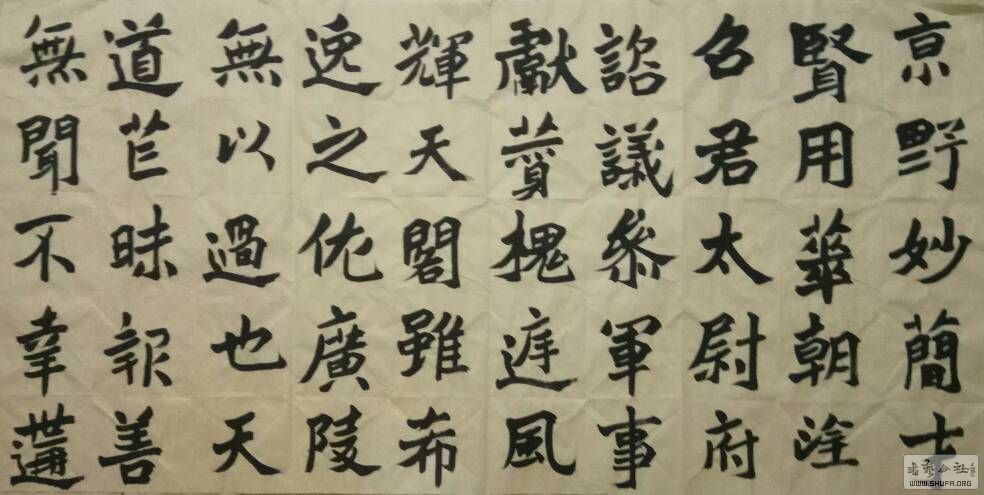 京野妙簡士
賢用華朝
召君太尉府
諮議參軍事
獻槐庭風
輝天閣雖希
逸之佐廣陵
無以過也天
道茫昧報善
無聞不幸遘
書藝公社
WWW.SHUFA.ORG